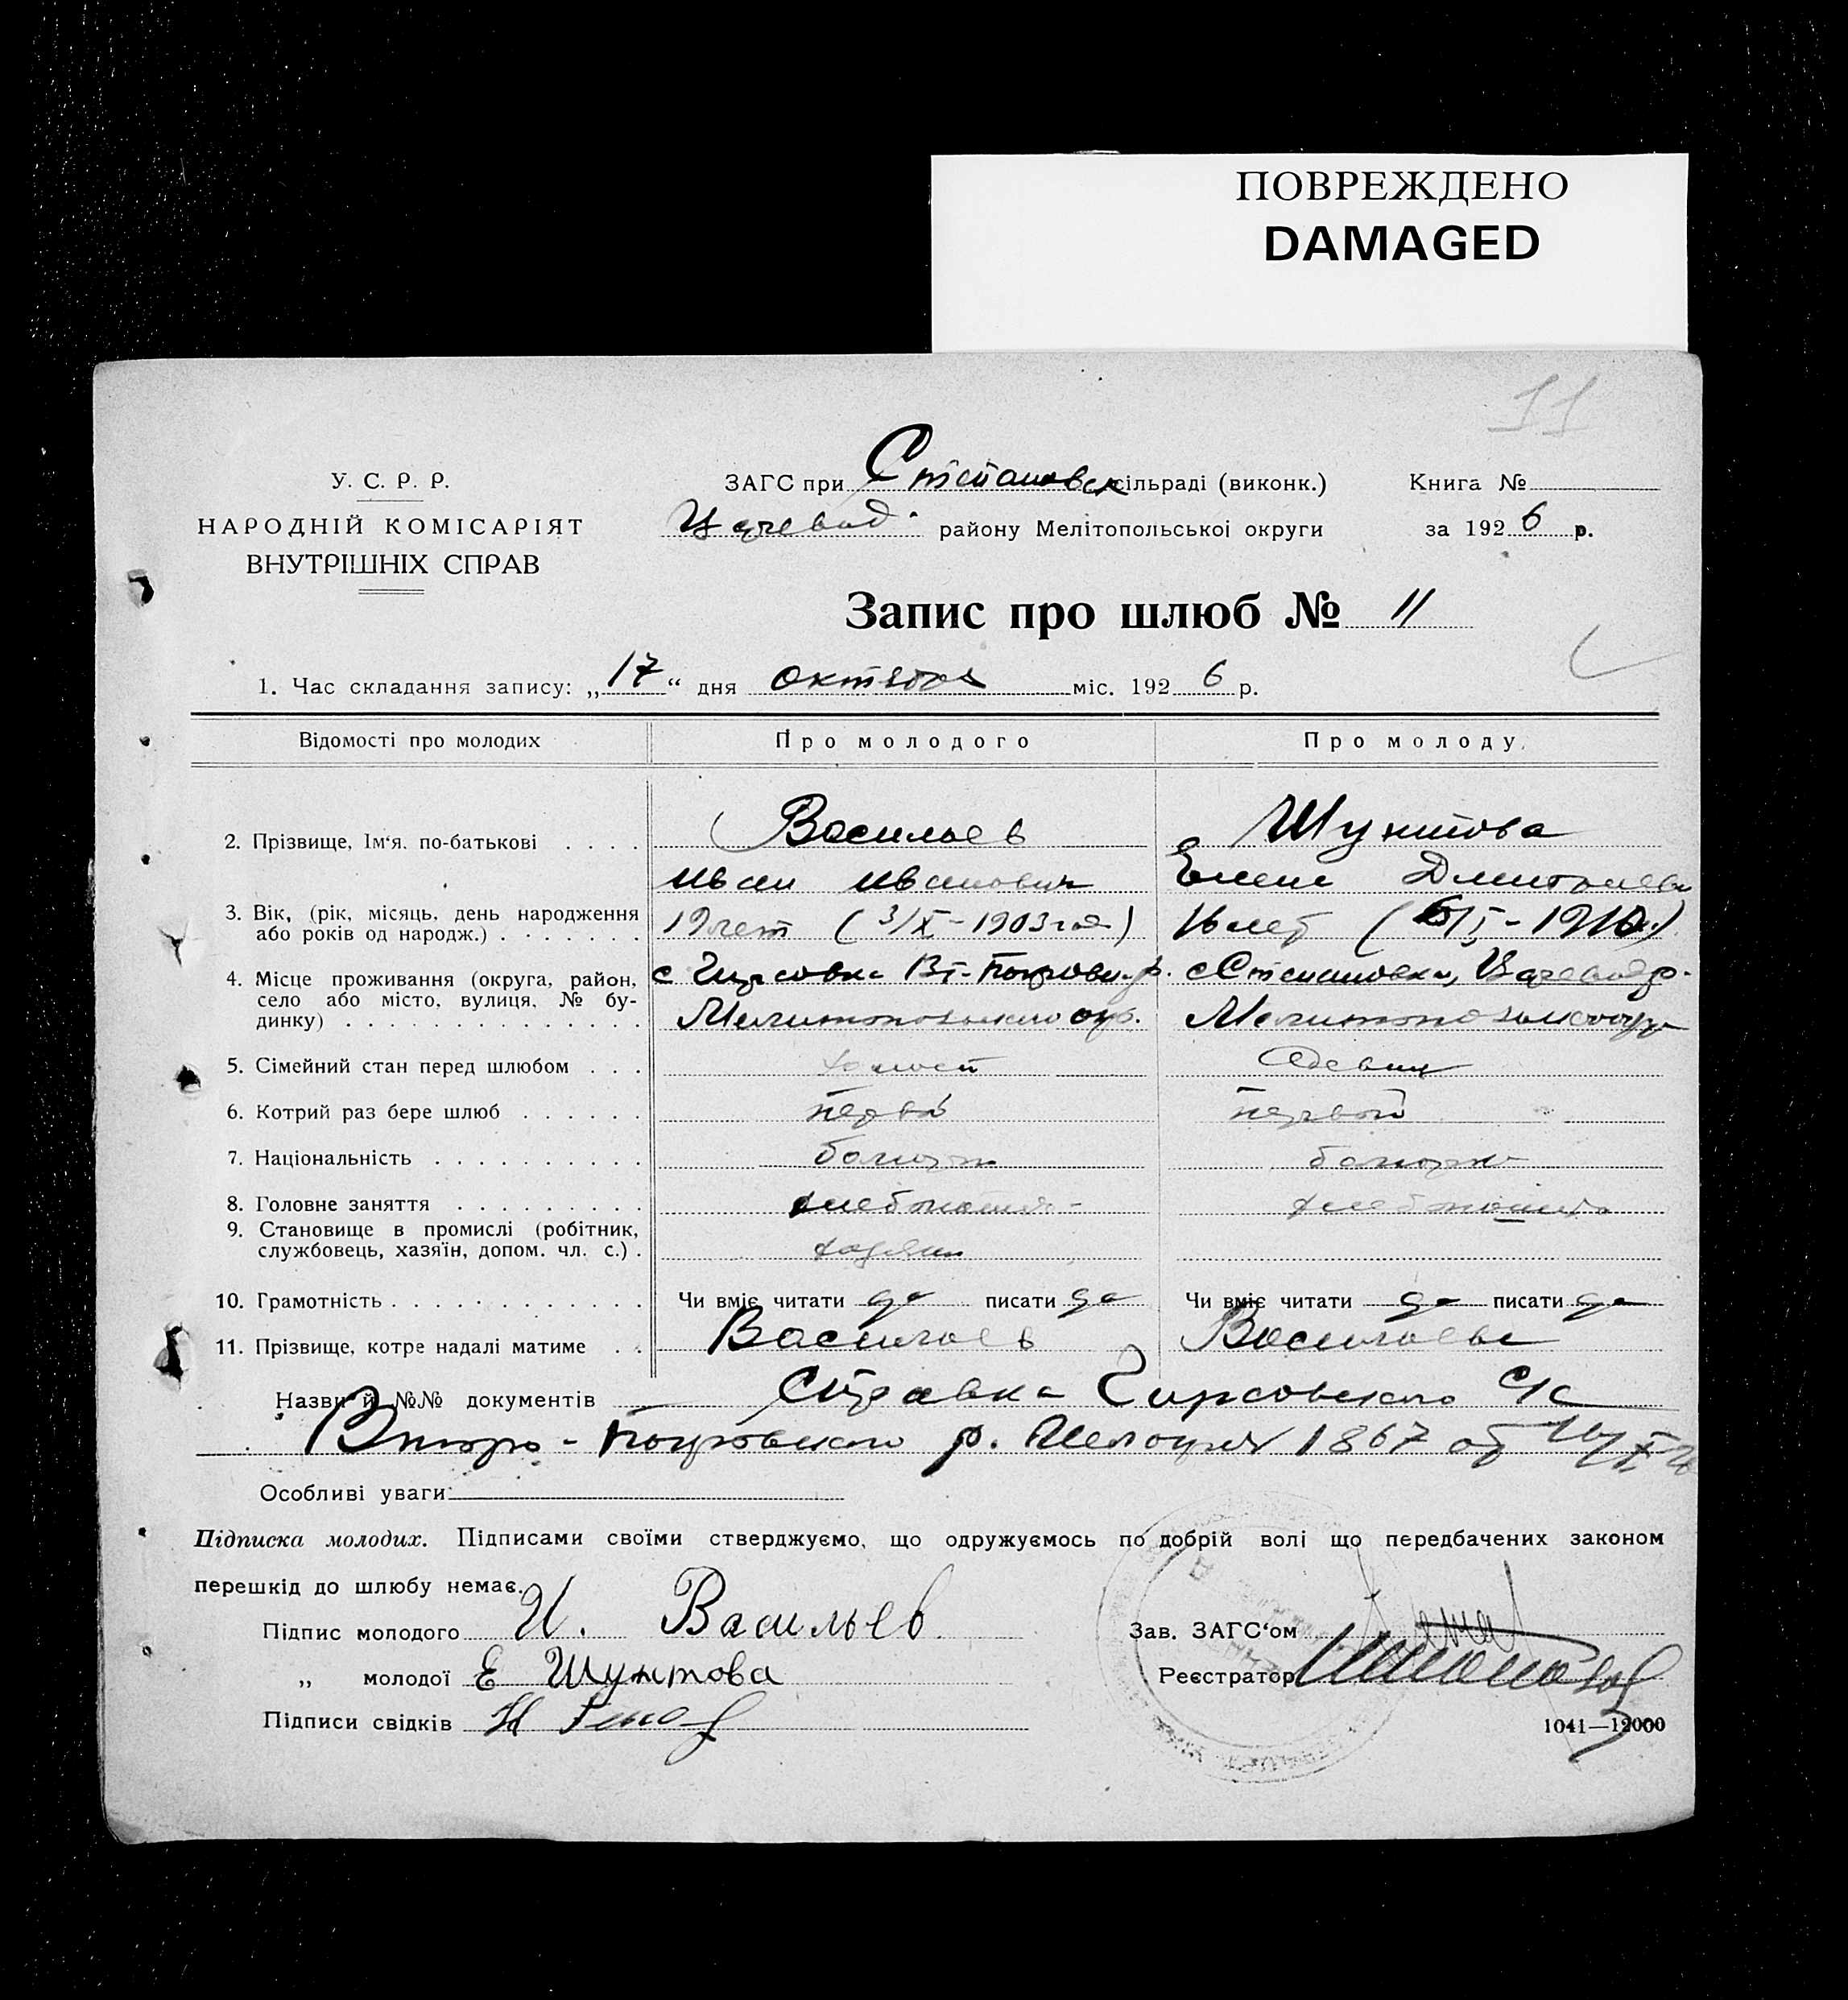 ПОВРЕЖДЕНО
DAMAGED
11
У. С. Р. Р.
НАРОДНІЙ КОМІСАРІЯТ
ВНУТРІШНІХ СПРАВ
ЗАГС при Степановск сільраді (виконк.)
Книга №
району Мелітопольської округи
за 1926 р.
Запис про шлюб № 11
1. Час складання запису: „17“ дня октября міс. 1926 р.
Відомості про молодих
Про молодого
Про молоду
2. Прізвище, Ім'я, по-батькові . . . .
Васильев
Шунтова
Иван Иванович
Елена Дмитриевн
3. Вік, (рік, місяць, день народження
або років од народж.) . . . . . . .
19 лет (3/X - 1903 )
16 лет ( /I - 1910 )
4. Місце проживання (округа, район,
село або місто, вулиця, № бу-
динку) . . . . . . . . . . . . . .
с Гирсовка Вт-Покровск. р.
с Степановка,
Мелитопольского окр.
Мелитопольского окр
5. Сімейний стан перед шлюбом . . .
холост
девица
6. Котрий раз бере шлюб . . . . . .
первый
первый
7. Національність . . . . . . . . . .
болгарин
болгарка
8. Головне заняття . . . . . . . . .
хлебопашес
хлебопашест
9. Становище в промислі (робітник,
службовець, хазяїн, допом. чл. с.) .
хозяин
10. Грамотність . . . . . . . . . . . .
Чи вміє читати да писати да
Чи вміє читати да писати да
11. Прізвище, котре надалі матиме . .
Васильев
Васильева
Назви й №№ документів Справка Гирсовского с/с
Второ-Покровского р. Мелокруга 1867 от
Особливі уваги
Підписка молодих. Підписами своїми стверджуємо, що одружуємось по добрій волі що передбачених законом
перешкід до шлюбу немає.
Підпис молодого И. Васильев
Зав. ЗАГС'ом
„ молодої Е Шунтова
Реєстратор
Підписи свідків
1041—12000